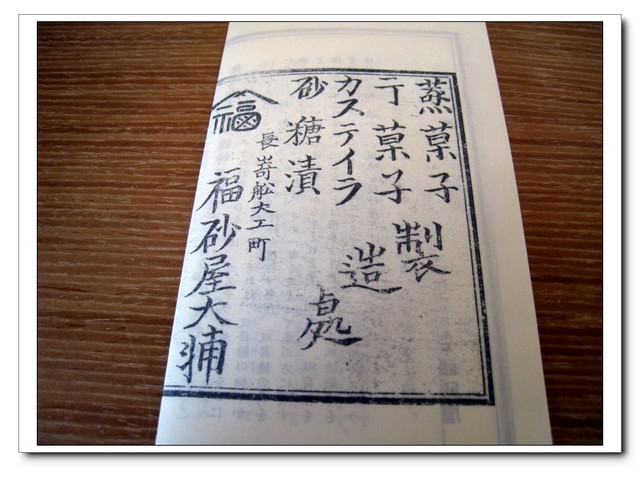 蒸菓子
干菓子
カステイラ
砂糖漬
製造處
福
長嵜舩大工町
福砂屋大輔